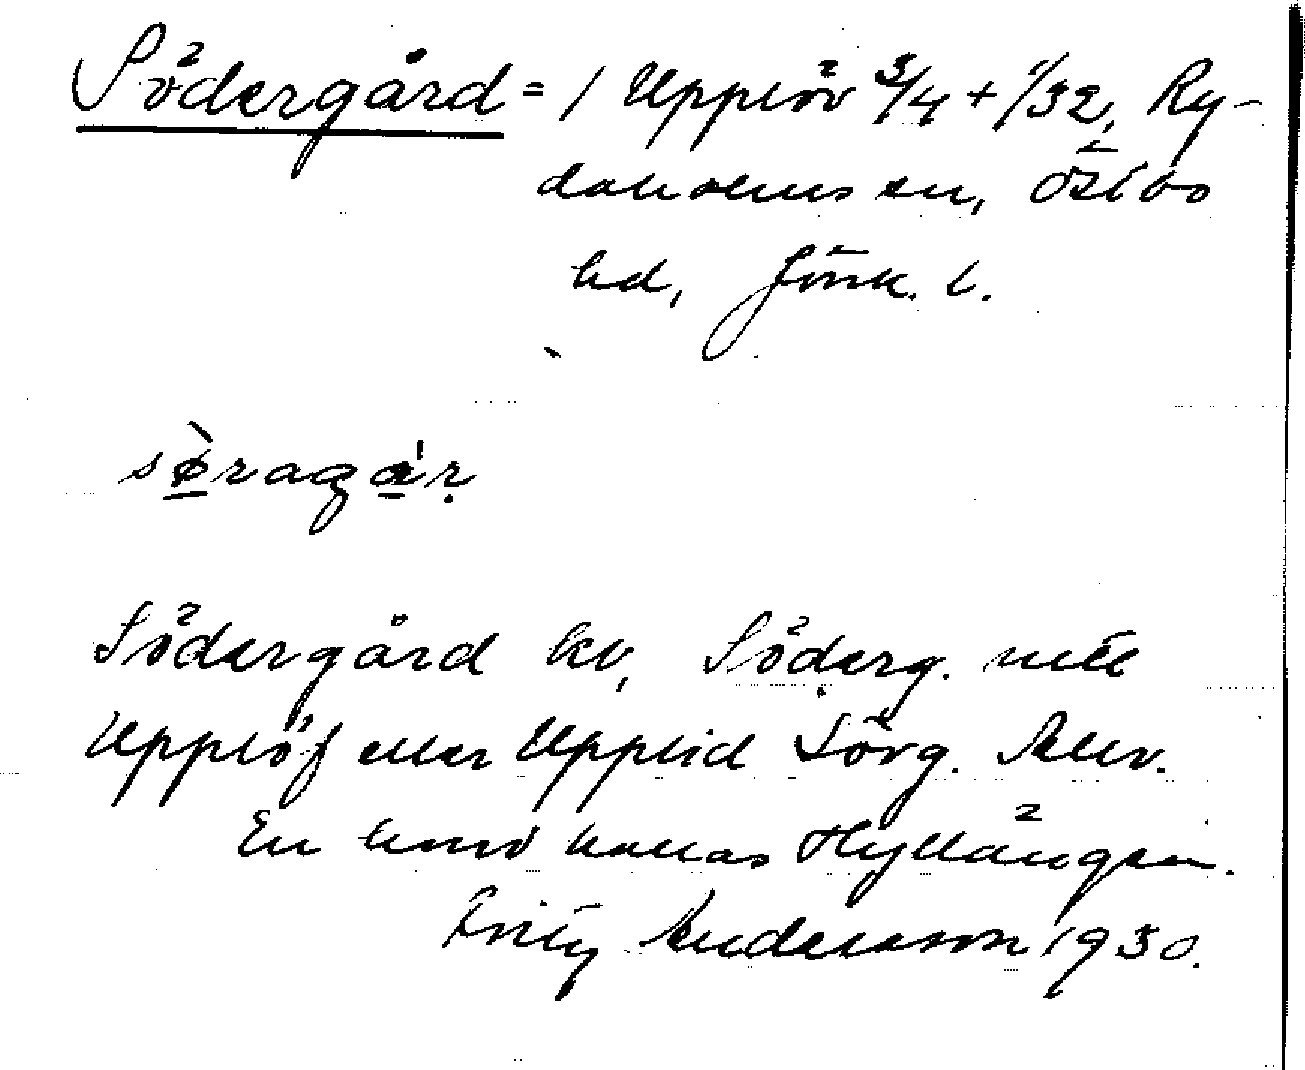 Södergård = 1 Upplöv 3/4 + 1/32, Ry-
daholms sn, Östbo
hd, Jönk. l.
sø̀ragá̱r̤
Södergård kv, Söderg. nill
Upplöf eller Upplid Sörg. Alv.
En hmd kallas Hyllängen.
Fritz Andersson 1930.